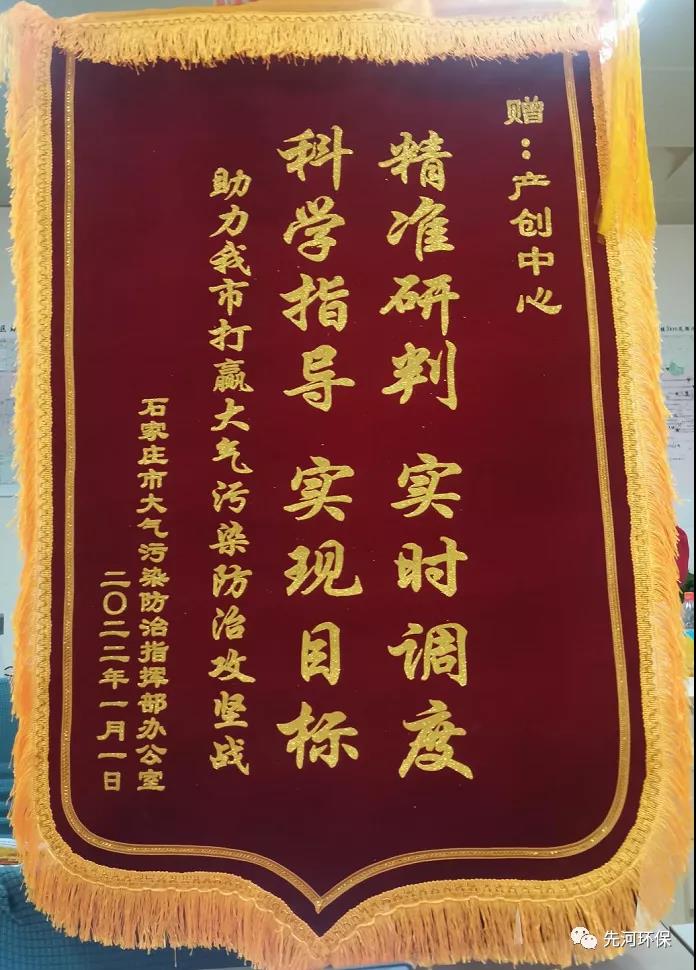 赠：产创中心
精准研判 实时调度
科学指导 实现目标
助力我市打赢大气污染防治攻坚战
石家庄市大气污染防治指挥部办公室
二〇二二年一月一日
先河环保